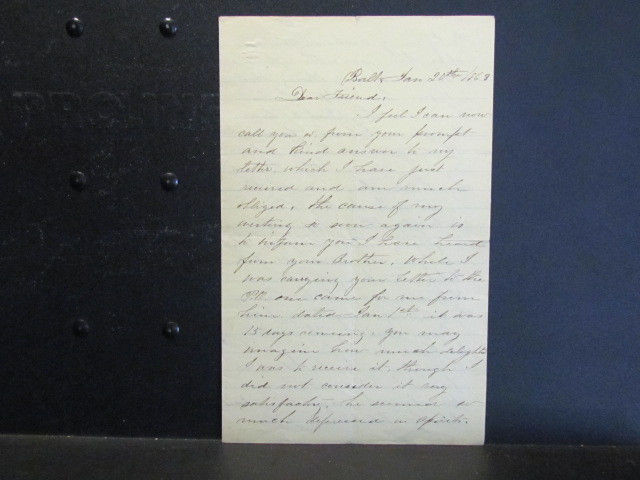 Balto Jan 20th 1868
Dear Friend,
I feel I can now
call you so from your prompt
and kind answer to my
letter, which I have just
received and am much
obliged, the cause of my
writing so soon again is
to inform you I have heard
from your Brother. While I
was carrying your letter to the
P.O. one came for me from
him dated Jan 1st it was
15 days coming, you may
imagin how much delighted
I was to receive it, though I
did not consider it any
satisfactry, he seemes so
much depressed in spirits.